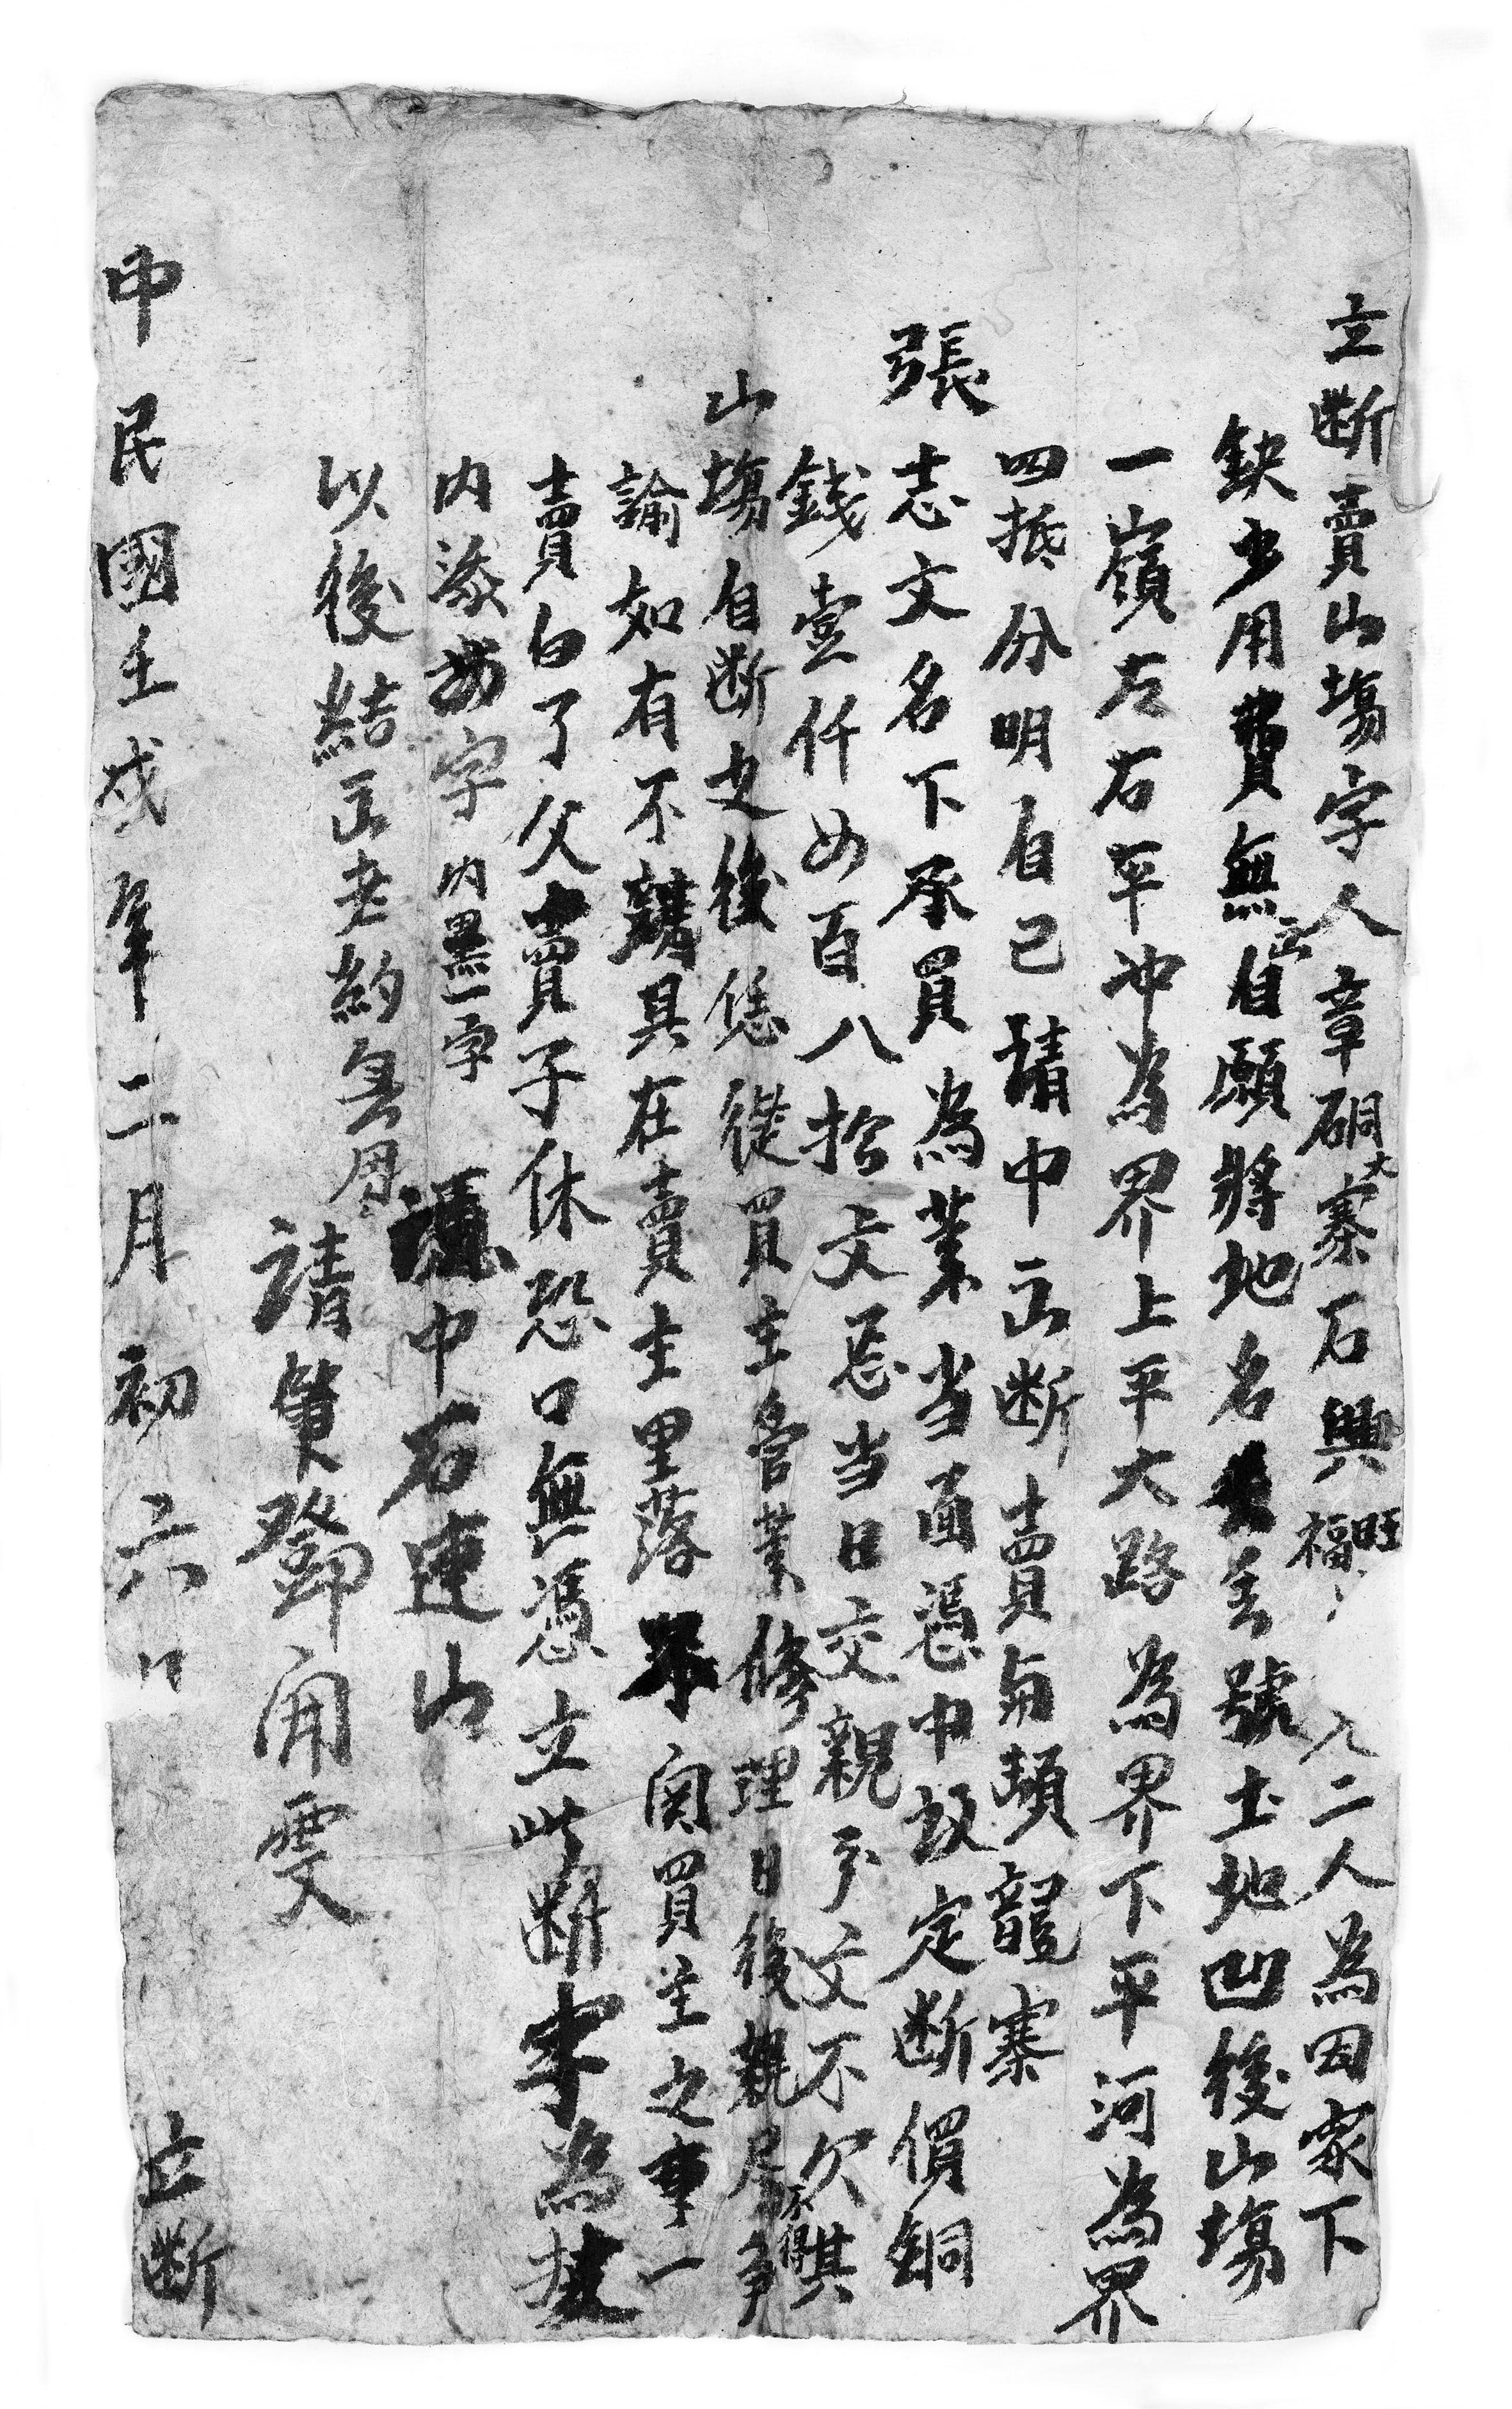 立断賣山塲字人章硐大寨石興旺福二人為因家下
缺少用費無出自願將地名號土地凹後山塲
一嶺左右平冲為界上平大路為界下平河為界
四抵分明自己請中立断賣與頼寨
張志文名下承買為業当面憑中議定断價銅
錢壹仟四百八拾文忌当日交親手文不欠其
山塲自断之後恁從買主管業修理日後親房不得争
論如有不清具在賣主里落不関買主之事一
賣白了父賣子休恐口無憑立此断字為據
内添字内墨一字 憑中石連山
以後結立老約無用 請筆鄧甬雯
中民國壬戌年二月初六日 立断